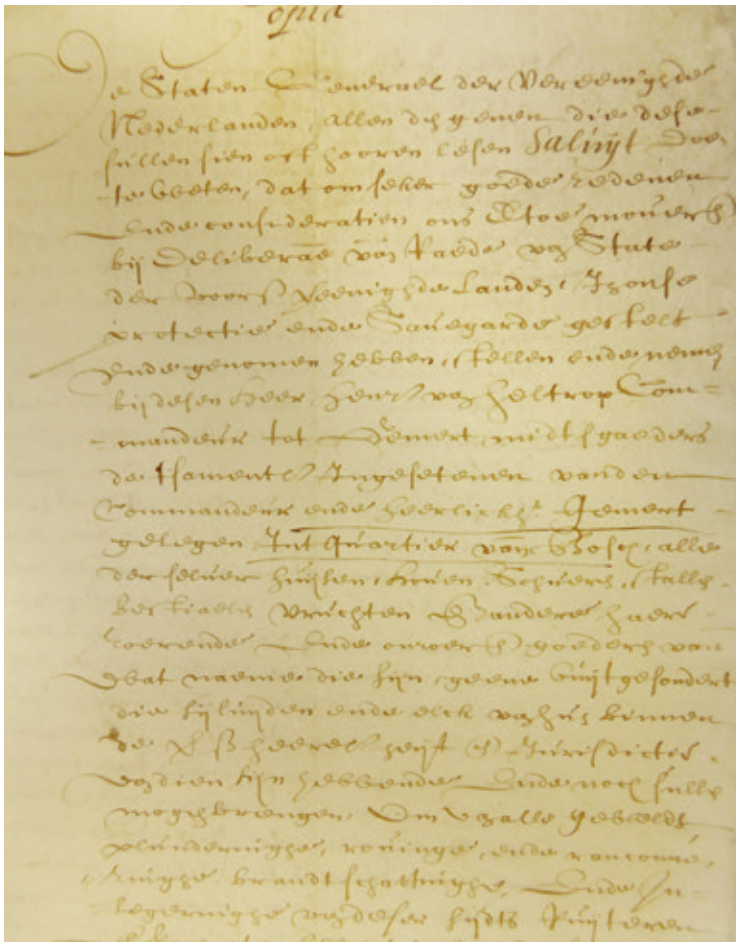 Copia
De Staten Generael der Vereenighde
Nederlanden, allen den genen die dese
sullen sien oft hooren lesen Saluyt doen
te weten, dat om seker goede redenen
ende consideratien ons daertoe mouerende
bij Deliberae van Raede van State
der voors Vereenighde Landen, In onse
protectie ende Sauegarde gestelt
ende genomen hebben, stellen ende nemen
bij desen heer Henr van Heltrop Com=
mandeur tot Gemert, midtsgaeders
de tsamentl Ingesetenen vanden
Commandeur ende heerlickh. Gemert
gelegen Int Quartier van Bosch, alle
der seluer huysen, houen, Schueren, stallen
bestiaelen vruchten ende andere haere
roerende ende onroerende goederen van
wat naeme die sijn geene vuijtgesondert
die sijluyden ende elck van hun binnen
de heerel Jurisdictie
van dien sijn hebbende ende noch sullen
mogen brengen, Om van alle gewelt,
plunderinghe, rouinge, ende ranconne,
ringhe brandtschattinghe, Ende In-
legeringhe van deser sijdts Ruyteren